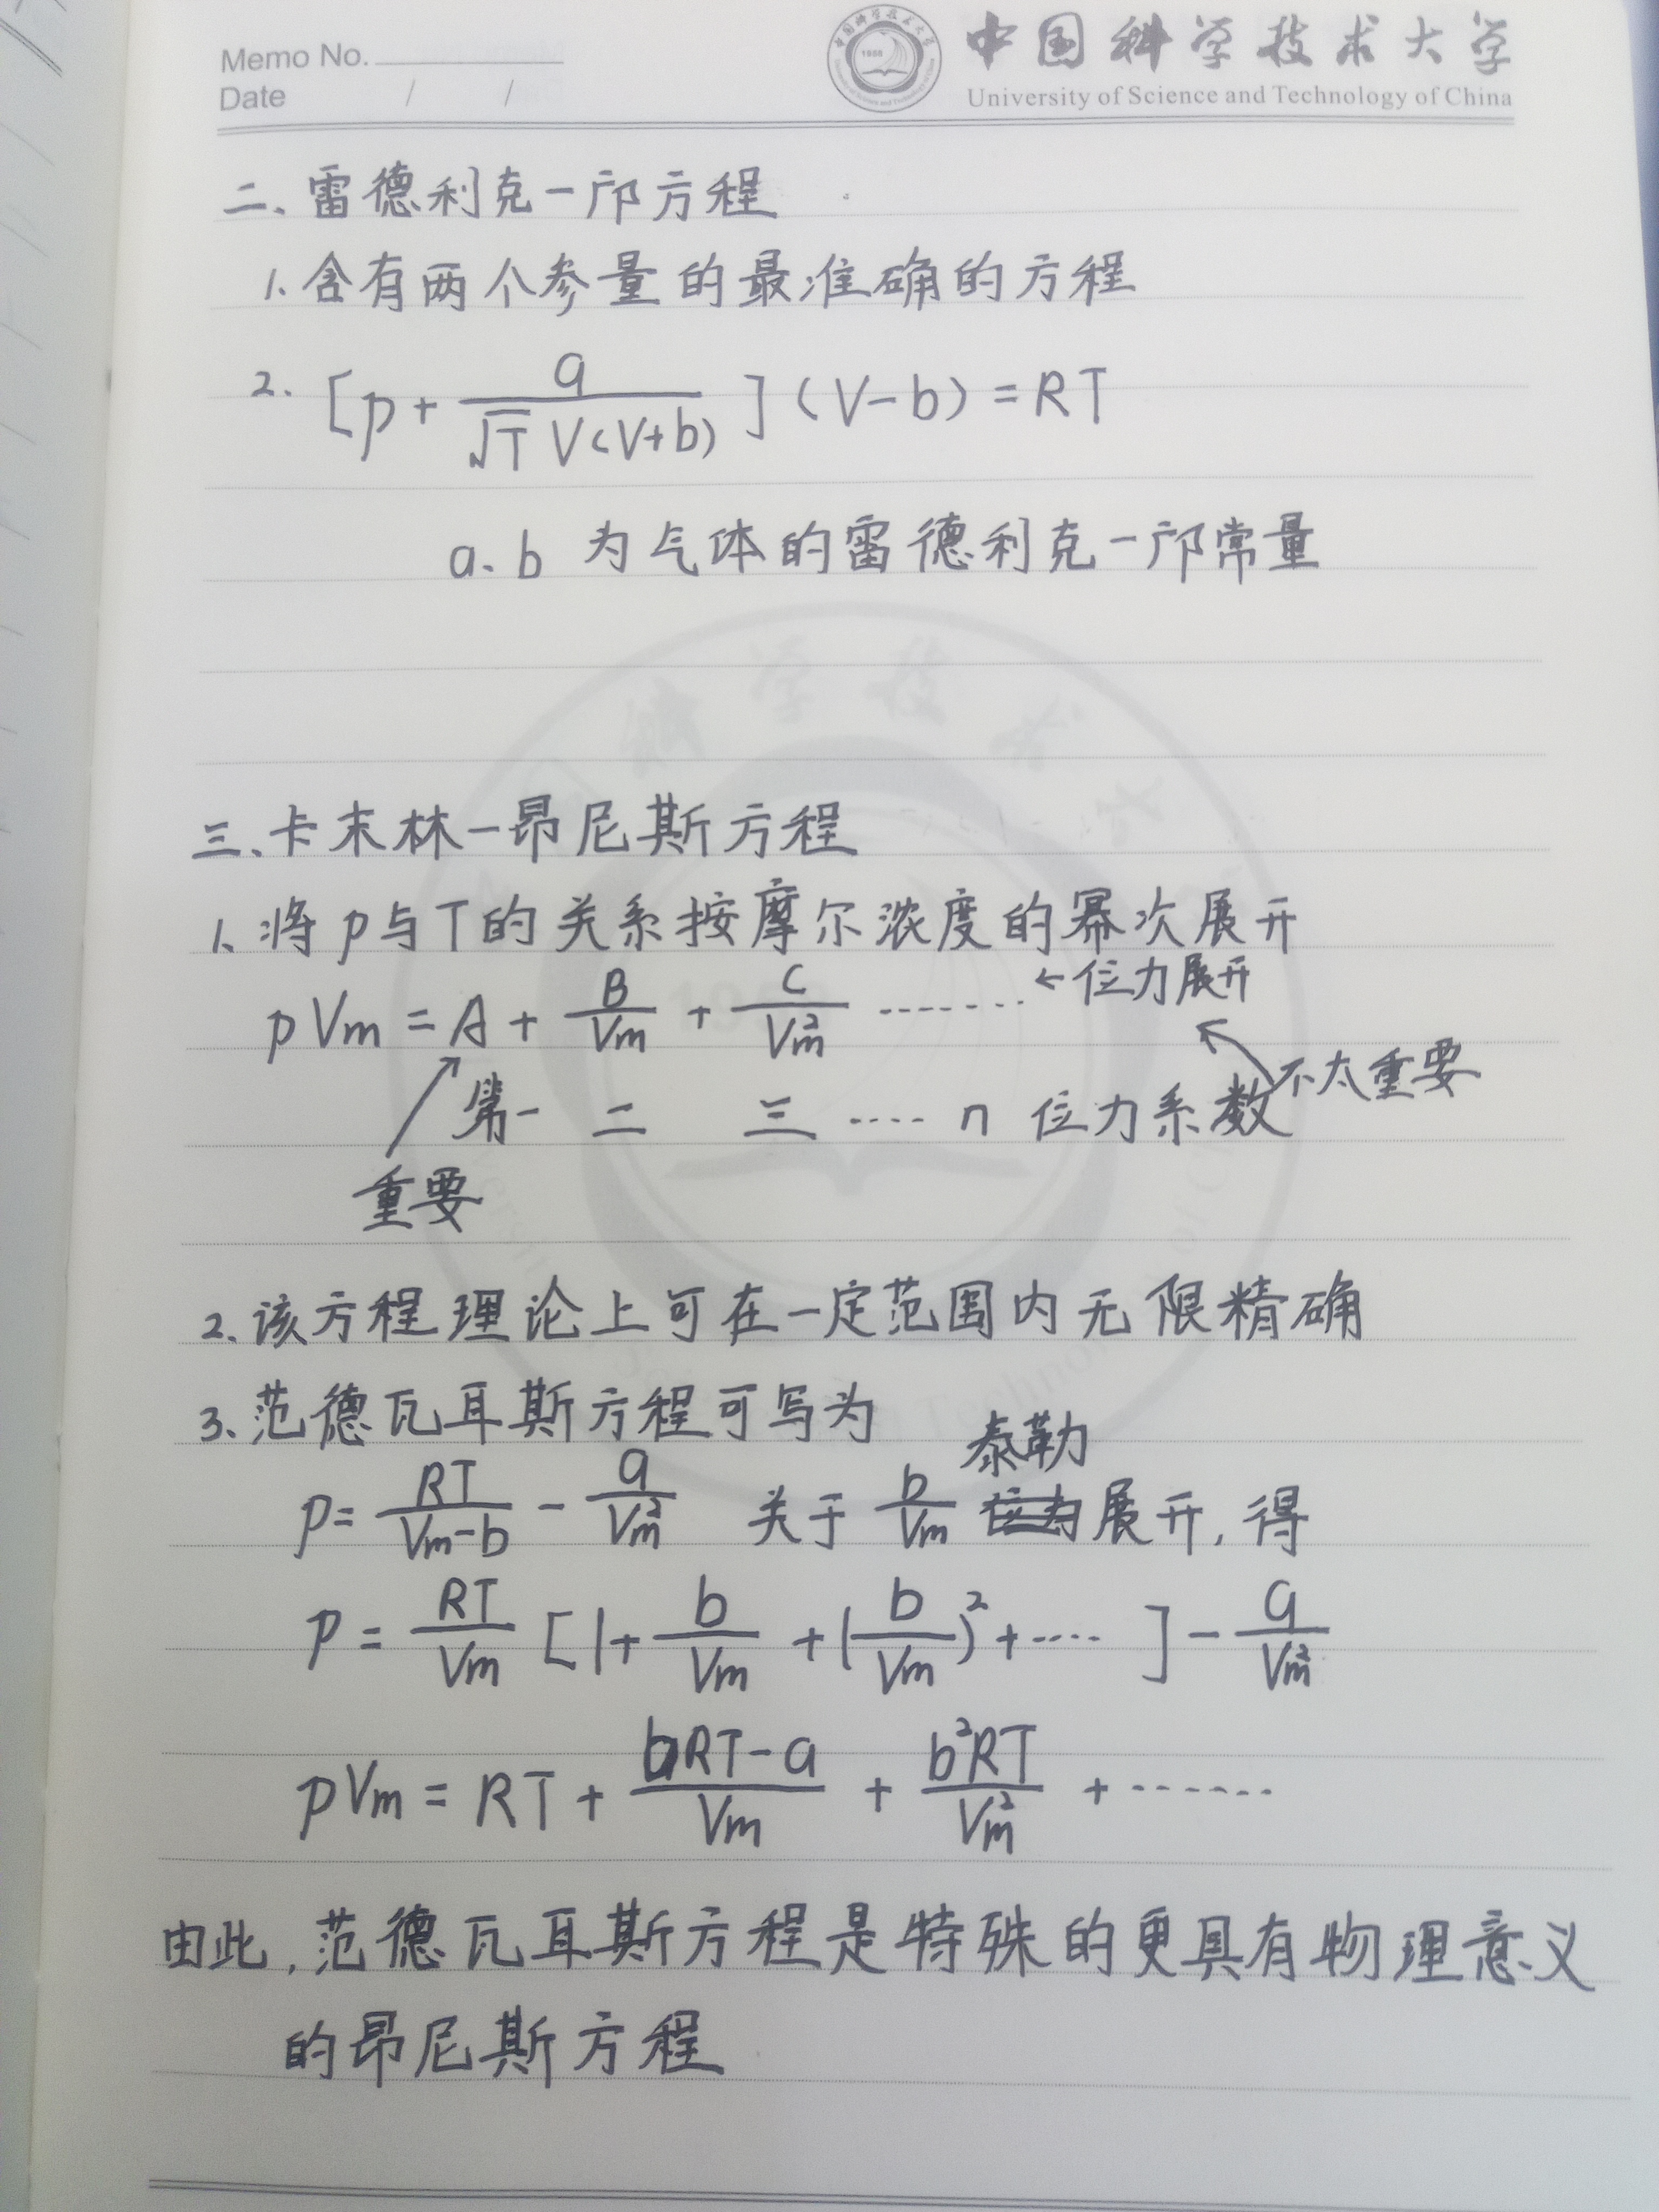 Memo No.
Date / /
中国科学技术大学
University of Science and Technology of China
二、雷德利克一邝方程
1. 含有两个参量的最准确的方程
2. [p + a/(√T V(V+b))] (V-b) = RT
a、b 为气体的雷德利克一邝常量
三、卡末林一昂尼斯方程
1、将p与T的关系按摩尔浓度的幂次展开
pVm = A + B/Vm + C/Vm² ------- ←位力展开
不太重要
第一 二 三 ---- n 位力系数
重要
2、该方程理论上可在一定范围内无限精确
3、范德瓦耳斯方程可写为
泰勒
p = RT/(Vm-b) - a/Vm² 关于 b/Vm 展开, 得
p = RT/Vm [1 + b/Vm + (b/Vm)² + ---- ] - a/Vm²
pVm = RT + (bRT-a)/Vm + b²RT/Vm² + ------
由此, 范德瓦耳斯方程是特殊的更具有物理意义
的昂尼斯方程